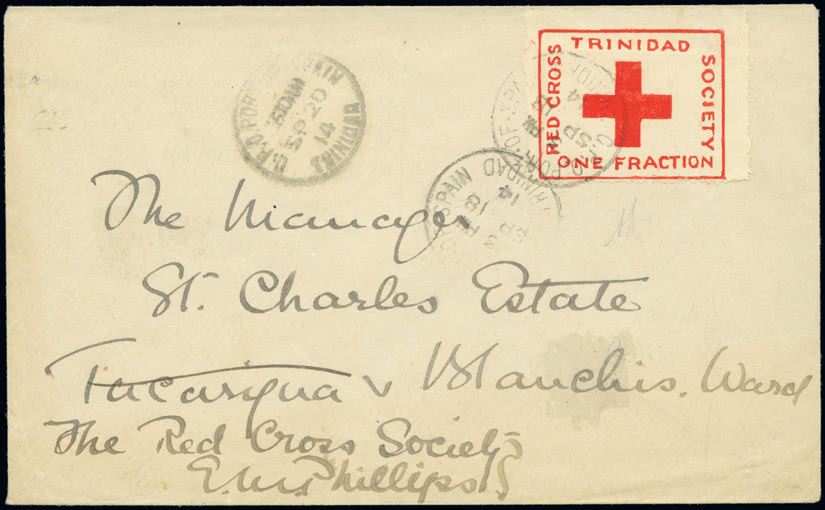 TRINIDAD
RED CROSS
SOCIETY
ONE FRACTION
G.P.O PORT OF SPAIN
SP 20
14
TRINIDAD
SPAIN
SP 18
14
TRINIDAD
The Manager
St. Charles Estate
Tacarigua v Blanchis. Ward
The Red Cross Society
Phillips